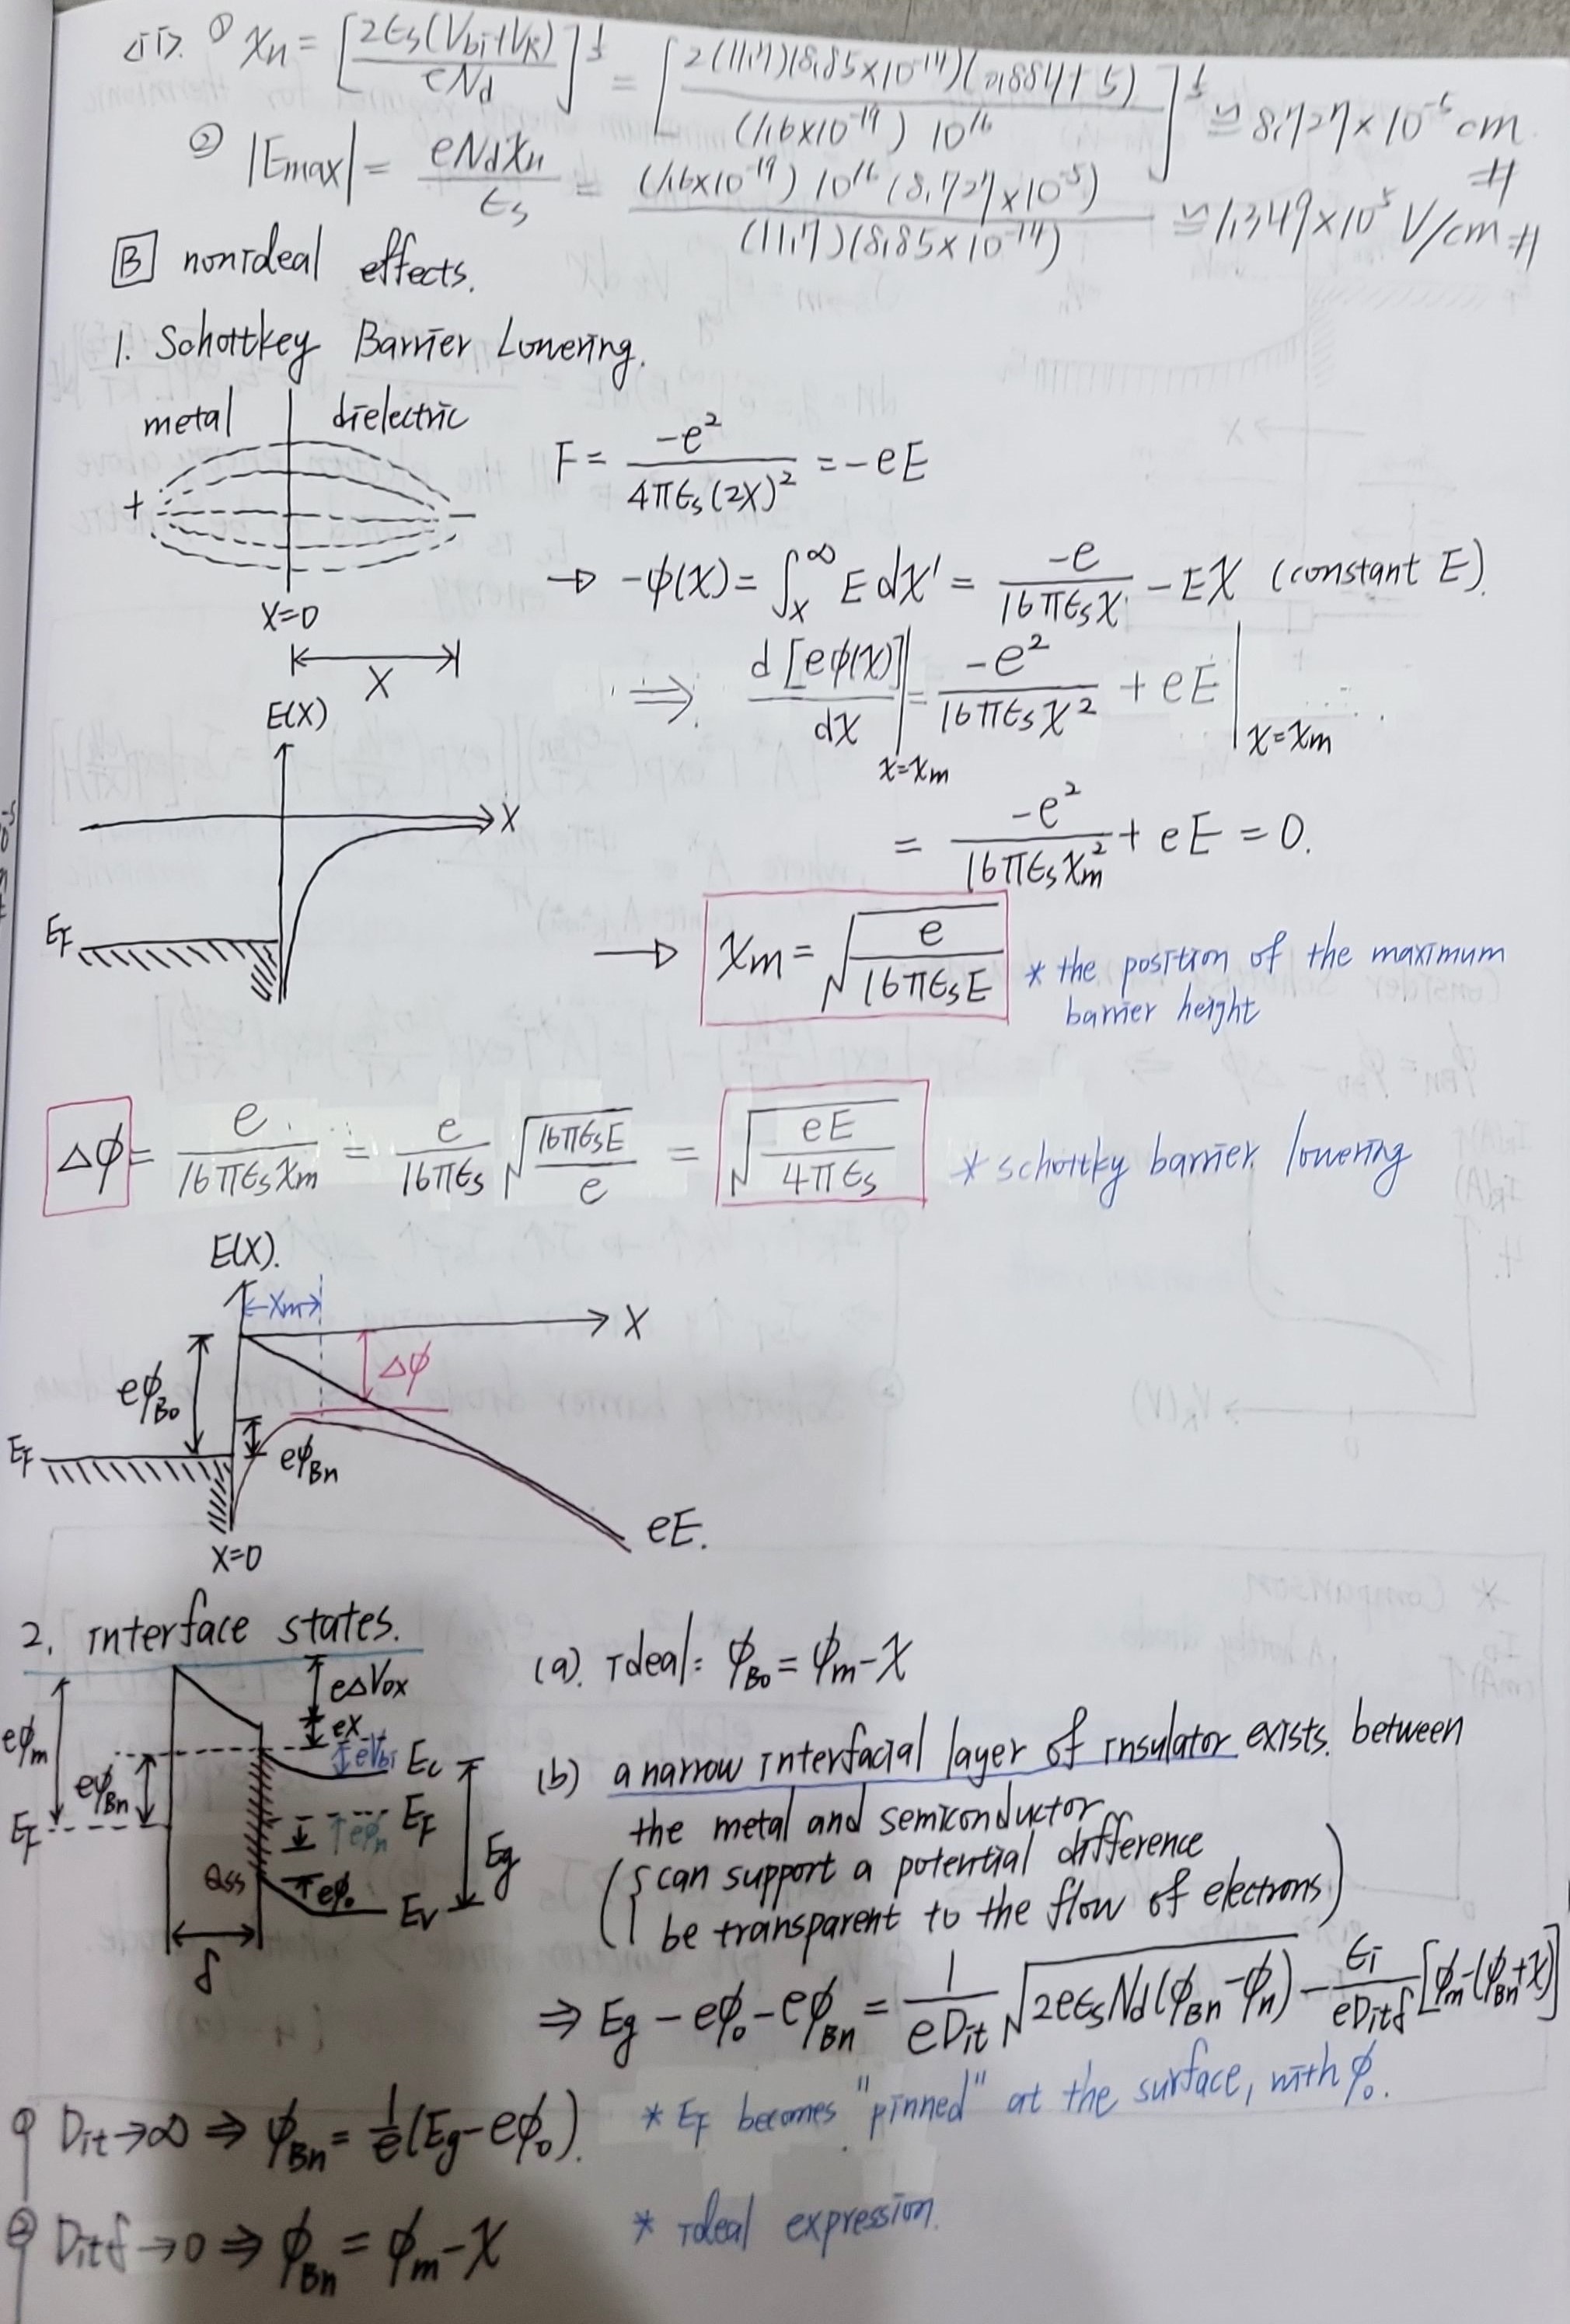 <ii>. ① xn = [2ϵs(Vbi+VR)/eNd]^½ = [2(11.7)(8.85×10^-14)(0.884+5)/(1.6×10^-19) 10^16]^½ ≅ 8.727×10^-5 cm #
② |Emax| = eNdxn/ϵs = (1.6×10^-19) 10^16 (8.727×10^-5)/(11.7)(8.85×10^-14) ≅ 1.349×10^5 V/cm #
B nonideal effects.
1. Schottkey Barrier Lowering.
metal dielectric
+ −
x=0
x
F = -e²/4πϵs(2x)² = -eE
→ -ϕ(x) = ∫x^∞ E dx' = -e/16πϵsx - Ex (constant E).
⇒ d[eϕ(x)]/dx |x=xm = -e²/16πϵsx² + eE |x=xm
= -e²/16πϵsxm² + eE = 0.
E(x)
x
EF
→ xm = √(e/16πϵsE) * the position of the maximum
barrier height
Δϕ = e/16πϵsxm = e/16πϵs √(16πϵsE/e) = √(eE/4πϵs) * schottky barrier lowering
E(x).
xm
x
Δϕ
eϕB0
EF
eϕBn
eE.
x=0
2. interface states.
eϕm
eΔVox
eχ
eVbi
Ec
eϕBn
EF
EF
eϕn
Eg
Qss
eϕ0
Ev
δ
(a). ideal: ϕB0 = ϕm - χ
(b) a narrow interfacial layer of insulator exists. between
the metal and semiconductor
({can support a potential difference
be transparent to the flow of electrons)
⇒ Eg - eϕ0 - eϕBn = 1/eDit √(2eϵsNd(ϕBn - ϕn)) - ϵi/eDitδ [ϕm - (ϕBn + χ)]
① Dit→∞ ⇒ ϕBn = 1/e (Eg - eϕ0). * EF becomes "pinned" at the surface, with ϕ0.
② Ditδ→0 ⇒ ϕBn = ϕm - χ * ideal expression.